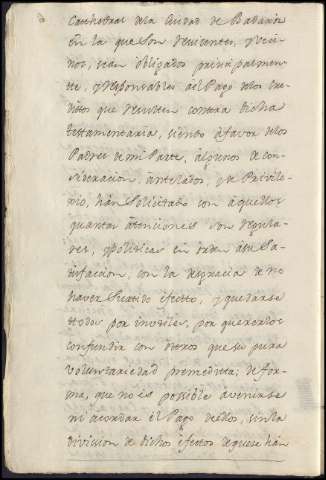 Cathedral dela Ciudad de Badaxoz
en la que son recidentes, y Veci-
nos, sean obligados principalmen-
te, y responsables àel Pago delos Cre-
ditos que resulten contra dicha
testamentaria, siendo àfavor delos
Padres de mi Parte, àlgunos de con-
sideracion, àntelados, y de Privile-
gio, hàn Solicitado con àquellos
quantas àtenciones son regula-
res, y politicas en orden àsu Sa-
tisfaccion, con la desgracia de no
haver Surtido èfecto, y quedarse
todos por inutiles, por quererlos
confundir con otros que su pura
voluntariedad premedita; de for-
ma, que no ès possible àvenirse
ni acordar èl Pago dellos, sin la
division de dichos èfectos de que se hàn